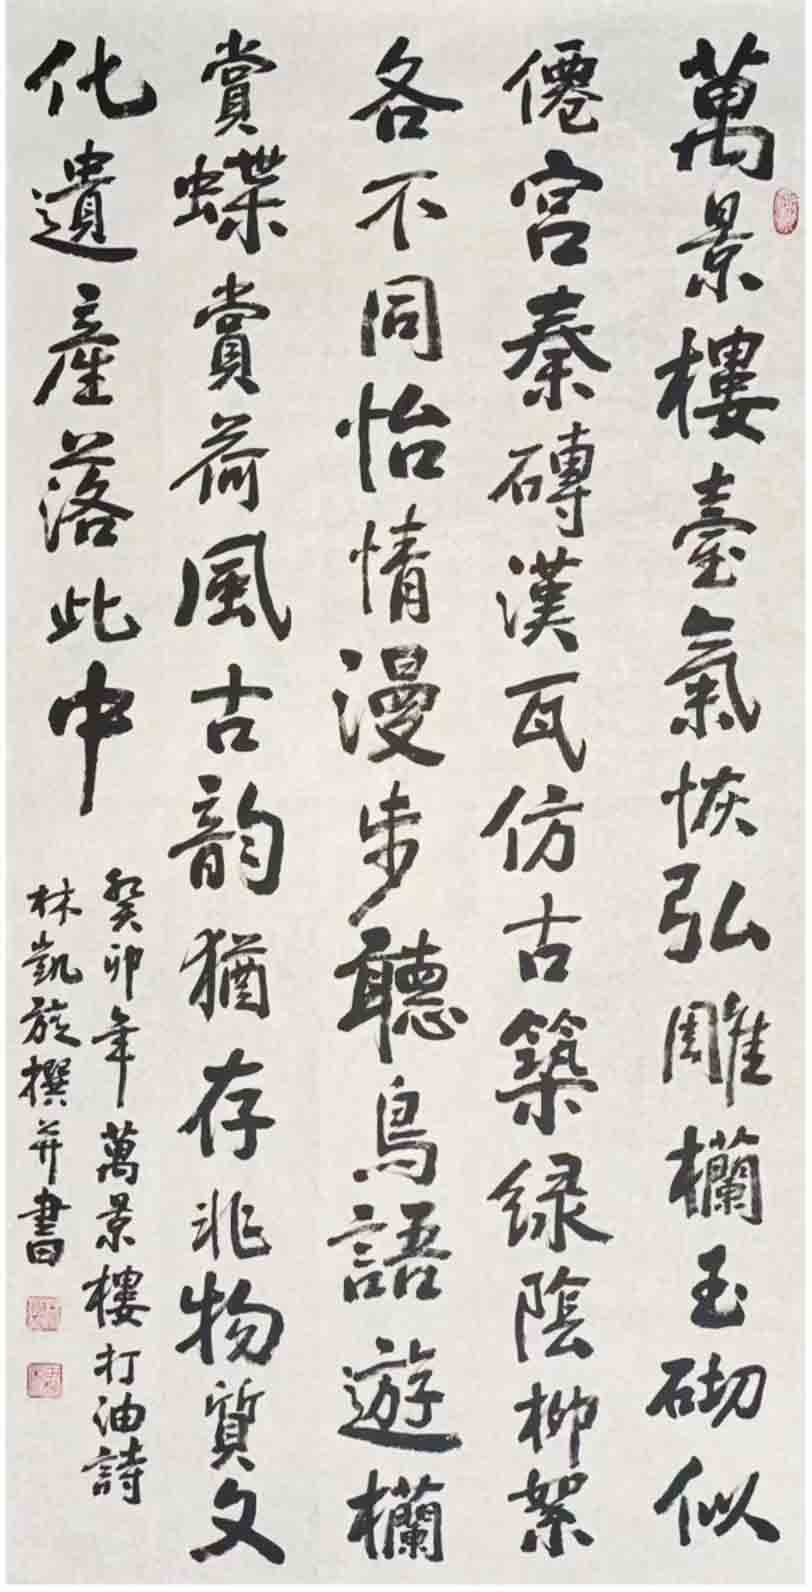 萬景樓臺氣恢弘雕欄玉砌似
僊宮秦磚漢瓦仿古築绿陰柳絮
各不同怡情漫步聽鳥語遊欄
賞蝶賞荷風古韵猶存非物質文
化遺産落此中
癸卯年萬景樓打油詩
林凱旋撰并書